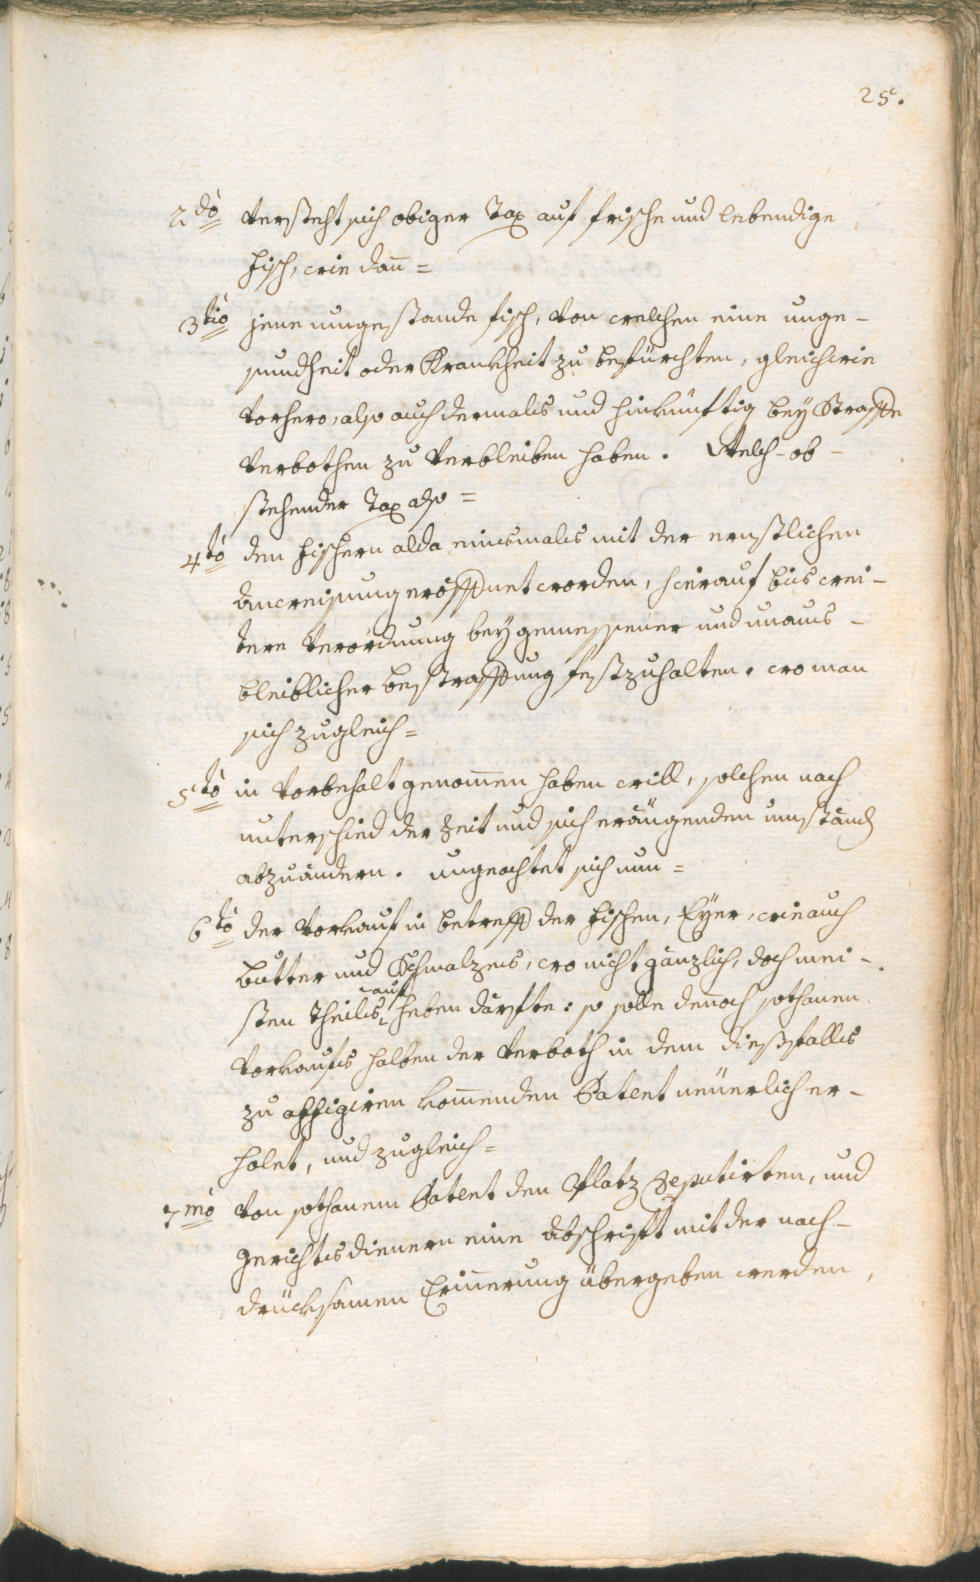 25.
2do versteht sich obiger Tax auf frische und lebendige
Fisch, wie dan̄ =
3tio jene umgestande fisch, von welchen eine unge-
sundheit oder Krankheit zu befürchten, gleichwie
vorhero, also auch dermals und hinkünftig bey Straffe
verbothen zu verbleiben haben. Welch-ob-
stehender Tax also =
4to den Fischern alda einsmals mit der ernstlichen
Anweisung eröffnet worden, hierauf bis wei-
tere Verordnung bey gemessener und unaus-
bleiblicher bestraffung festzuhalten. wo man
sich zugleich =
5to in Vorbehalt genom̄en haben will, solchen nach
unterschied der Zeit und sich eräugenden umständ
abzuändern. ungeachtet sich nun =
6to der Vorkauf in betreff der Fischen, Eÿer, wie auch
butter und Schmalzes, wo nicht gänzlich, doch mei-
sten Theils aufheben därfte: so solle den̄och sothanen
Vorkaufs halben der Verboth in dem dießfalls
zu affigiren kom̄enden Patent neüerlich er-
holet, und zugleich =
7mo von sothanem Patent den Platz Deputirten, und
Gerichtsdienern eine Abschrift mit der nach-
drücksamen Erin̄erung übergeben werden,